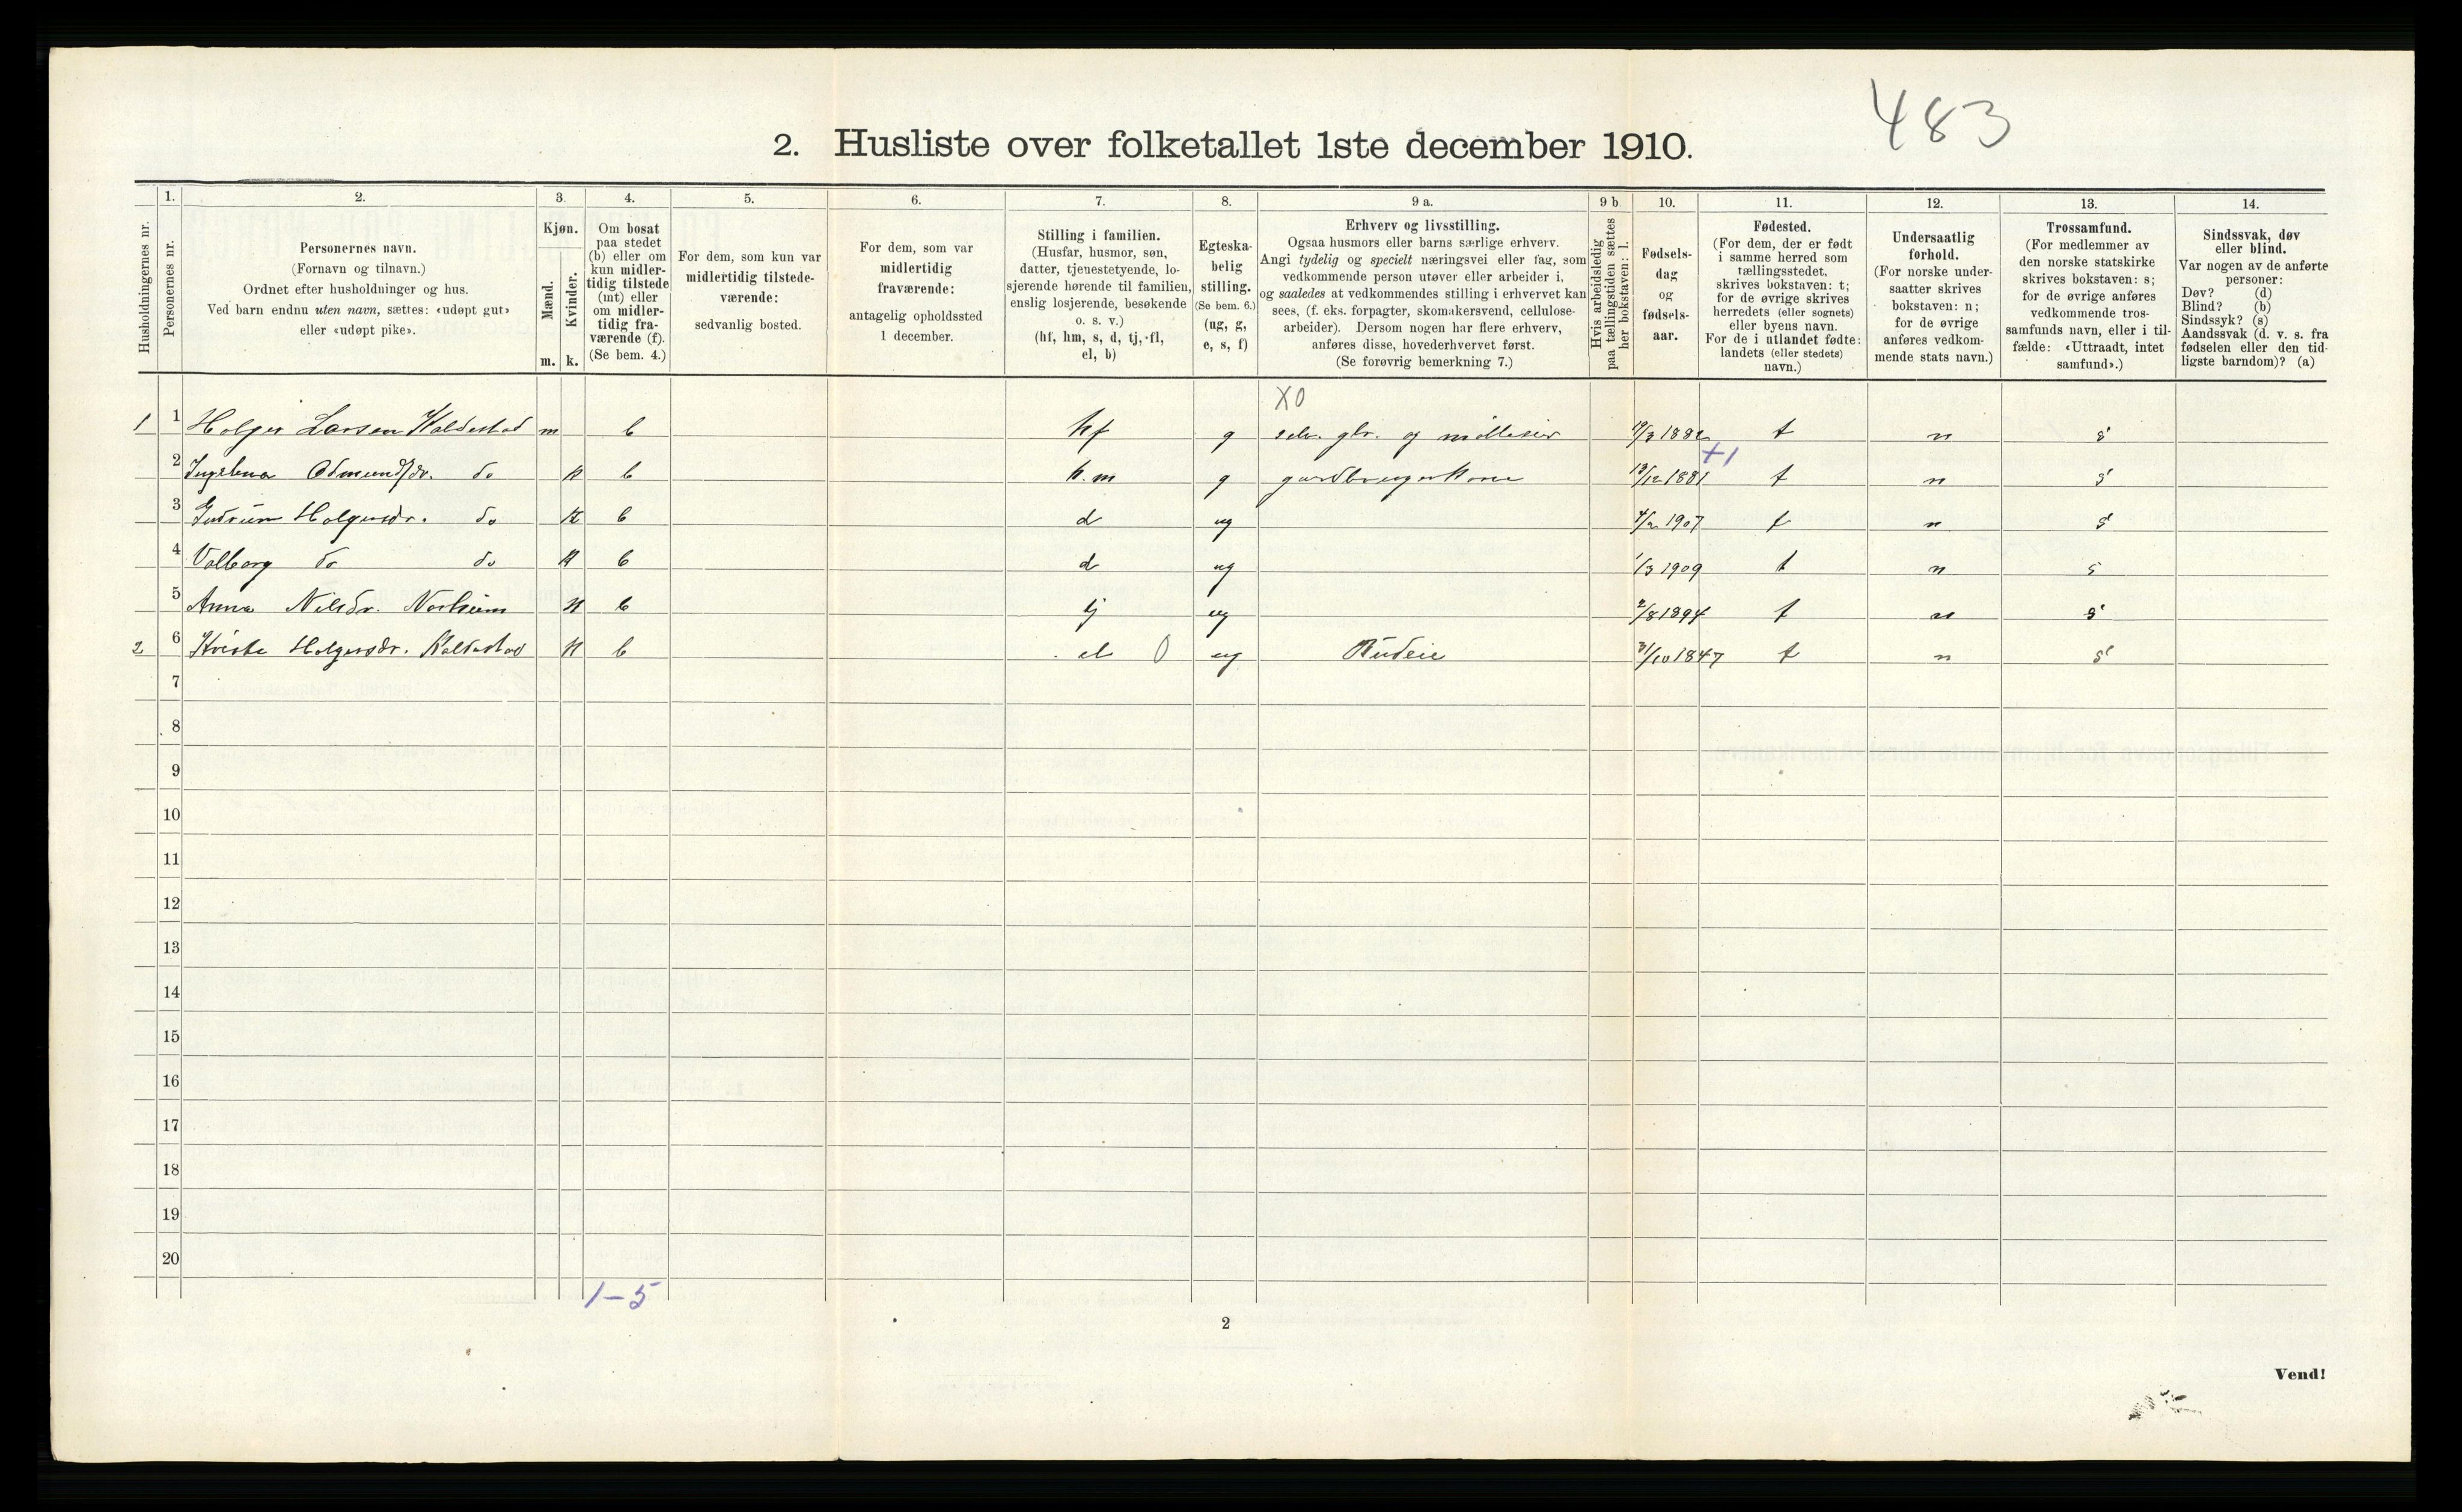 483
2. Husliste over folketallet 1ste december 1910.
Husholdningernes nr.
1.
Personernes nr.
2.
Personernes navn.
(Fornavn og tilnavn.)
Ordnet efter husholdninger og hus.
Ved barn endnu uten navn, sættes: «udøpt gut»
eller «udøpt pike».
3.
Kjøn.
Mænd.
Kvinder.
m. k.
4.
Om bosat
paa stedet
(b) eller om
kun midler-
tidig tilstede
(mt) eller
om midler-
tidig fra-
værende (f).
(Se bem. 4.)
5.
For dem, som kun var
midlertidig tilstede-
værende:
sedvanlig bosted.
6.
For dem, som var
midlertidig
fraværende:
antagelig opholdssted
1 december.
7.
Stilling i familien.
(Husfar, husmor, søn,
datter, tjenestetyende, lo-
sjerende hørende til familien,
enslig losjerende, besøkende
o. s. v.)
(hf, hm, s, d, tj, fl,
el, b)
8.
Egteska-
belig
stilling.
(Se bem. 6.)
(ug, g,
e, s, f)
9 a.
Erhverv og livsstilling.
Ogsaa husmors eller barns særlige erhverv.
Angi tydelig og specielt næringsvei eller fag, som
vedkommende person utøver eller arbeider i,
og saaledes at vedkommendes stilling i erhvervet kan
sees, (f. eks. forpagter, skomakersvend, cellulose-
arbeider). Dersom nogen har flere erhverv,
anføres disse, hovederhvervet først.
(Se forøvrig bemerkning 7.)
9 b
Hvis arbeidsledig
paa tællingstiden sættes
her bokstaven: l.
10.
Fødsels-
dag
og
fødsels-
aar.
11.
Fødested.
(For dem, der er født
i samme herred som
tællingsstedet,
skrives bokstaven: t;
for de øvrige skrives
herredets (eller sognets)
eller byens navn.
For de i utlandet fødte:
landets (eller stedets)
navn.)
12.
Undersaatlig
forhold.
(For norske under-
saatter skrives
bokstaven: n;
for de øvrige
anføres vedkom-
mende stats navn.)
13.
Trossamfund.
(For medlemmer av
den norske statskirke
skrives bokstaven: s;
for de øvrige anføres
vedkommende tros-
samfunds navn, eller i til-
fælde: «Uttraadt, intet
samfund».)
14.
Sindssvak, døv
eller blind.
Var nogen av de anførte
personer:
Døv? (d)
Blind? (b)
Sindssyk? (s)
Aandssvak (d. v. s. fra
fødselen eller den tid-
ligste barndom)? (a)
X0
1 1 Holger Larsen Kaldestad m b hf g selv. gbr. og mølleeier 19/3 1882 t n s
+1
2 Ingelena Odmundsdr. do k b h.m g gardbrugerkone 13/12 1881 t n s
3 Gudrun Holgersdr. do k b d ug 4/2 1907 t n s
4 Valborg do do k b d ug 1/3 1909 t n s
5 Anna Nilsdr. Norheim k b tj ug 2/8 1894 t n s
2 6 Kriste Holgersdr. Kaldestad k b el 0 ug Budeie 31/10 1847 t n s
7
8
9
10
11
12
13
14
15
16
17
18
19
20
1-5
2
Vend!